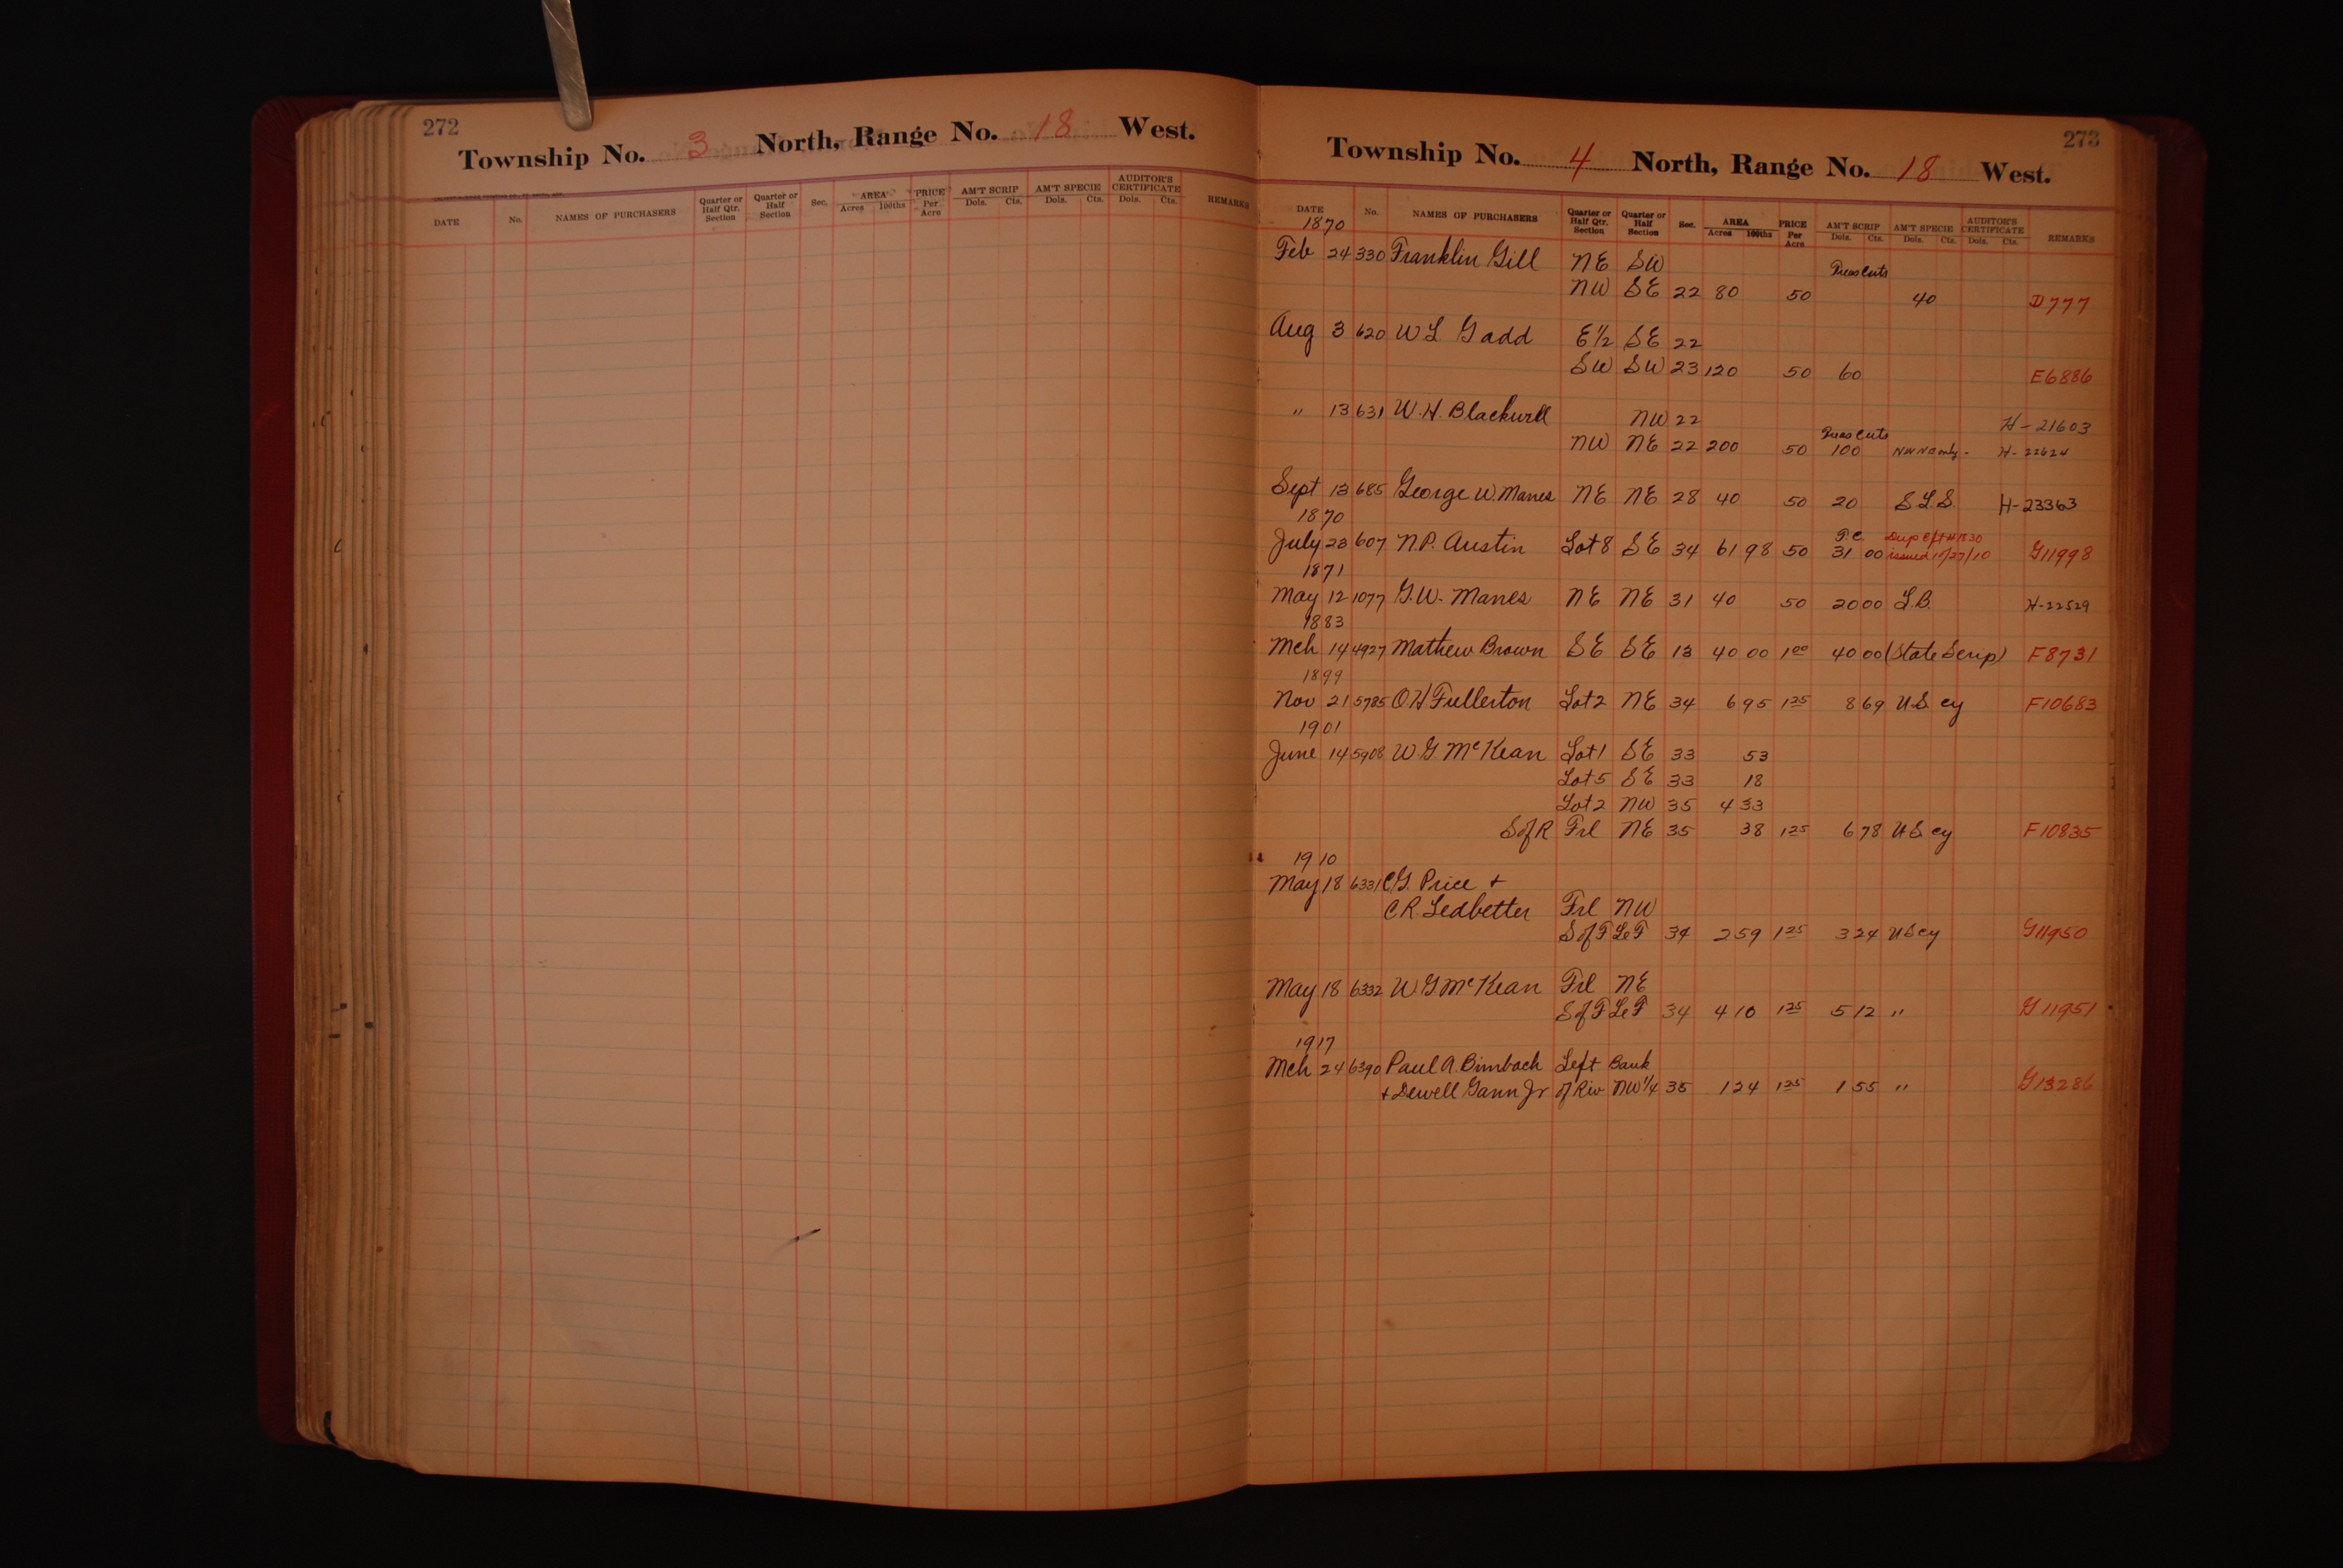 272
Township No. 3 North, Range No. 18 West.
DATE No. NAMES OF PURCHASERS Quarter or Half Qtr. Section Quarter or Half Section Sec. AREA Acres 100ths PRICE Per Acre AM'T SCRIP Dols. Cts. AM'T SPECIE Dols. Cts. AUDITOR'S CERTIFICATE Dols. Cts. REMARKS
273
Township No. 4 North, Range No. 18 West.
DATE No. NAMES OF PURCHASERS Quarter or Half Qtr. Section Quarter or Half Section Sec. AREA Acres 100ths PRICE Per Acre AM'T SCRIP Dols. Cts. AM'T SPECIE Dols. Cts. AUDITOR'S CERTIFICATE Dols. Cts. REMARKS
1870
Feb 24 330 Franklin Gill NE SW
NW SE 22 80 50 40 D777
Aug 3 620 W L Gadd E½ SE 22
SW SW 23 120 50 60 E6886
" 13 631 W. H. Blackwell NW 22 H-21603
NW NE 22 200 50 100 NW NE only - H-22624
Sept 13 685 George W. Manes NE NE 28 40 50 20 S L S H-23363
1870
July 23 607 N. P. Austin Lot 8 SE 34 61 98 50 31 00 issued 10/27/10 G11998
1871
May 12 1077 G. W. Manes NE NE 31 40 50 20 00 L.B. H-22529
1883
Mch 14 4927 Mathew Brown SE SE 13 40 00 1 00 40 00 (State Scrip) F8731
1899
Nov 21 5785 O H Fullerton Lot 2 NE 34 6 95 1 25 8 69 U.S. cy F10683
1901
June 14 5908 W. G. McKean Lot 1 SE 33 53
Lot 5 SE 33 18
Lot 2 NW 35 4 33
S of R Frl NE 35 38 1 25 6 78 U S cy F10835
1910
May 18 6331 C. G. Price +
C R. Ledbetter Frl NW
S of F Le F 34 2 59 1 25 3 24 U S cy G11950
May 18 6332 W G McKean Frl NE
S of F Le F 34 4 10 1 25 5 12 " G11951
1917
Mch 24 6390 Paul A. Bimbach Left Bank
+ Dewell Gann Jr of Riv NW¼ 35 1 24 1 25 1 55 " G13286